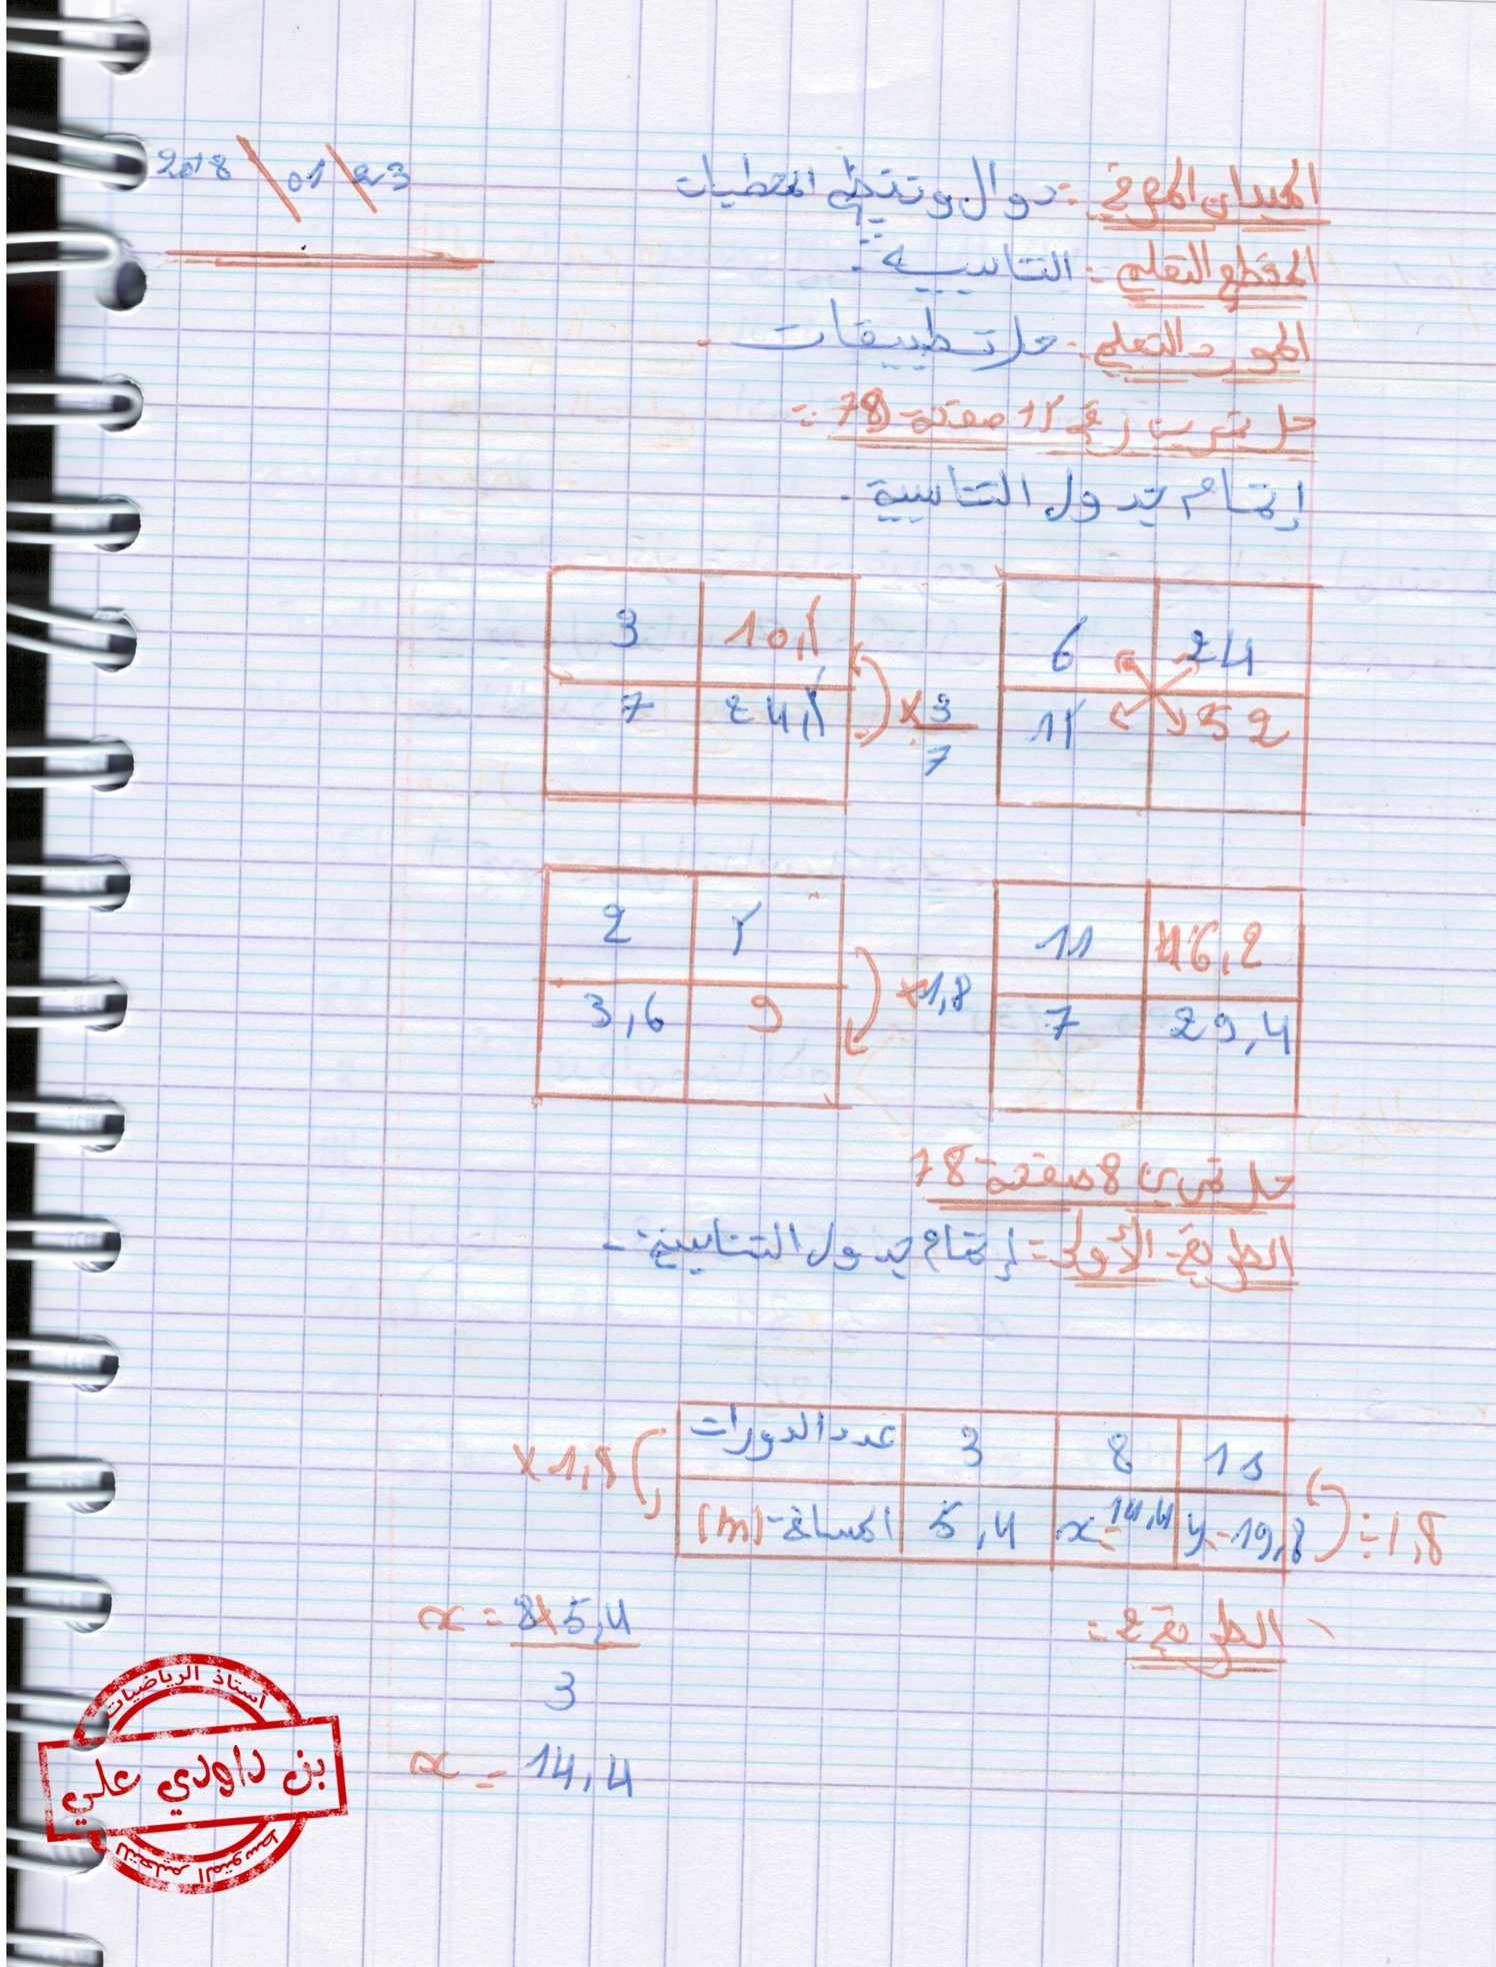 2018 \ 01 \ 23
الميدان المعرفي :- دوال وتنظيم المعطيات
المقطع التعلمي :- التناسبية .
المورد التعلمي :- حل تطبيقات .
حل تمرين رقم 15 صفحة 78 :=
إتمام جدول التناسبية .
3 10,5
7 24,5
× 3/7
6 24
52
2 5
3,6 9
×1,8
11 46,2
7 29,4
حل تمرين 8 صفحة 78
الطريقة الأولى :- إتمام جدول التناسبية .
عدد الدورات 3 8 11
المسافة (m) 5,4 x=14,4 y=19,8
×1,8
÷1,8
الطريقة 2 :=
x = 8×5,4
3
x = 14,4
أستاذ الرياضيات
بن داودي علي
للتعليم المتوسط